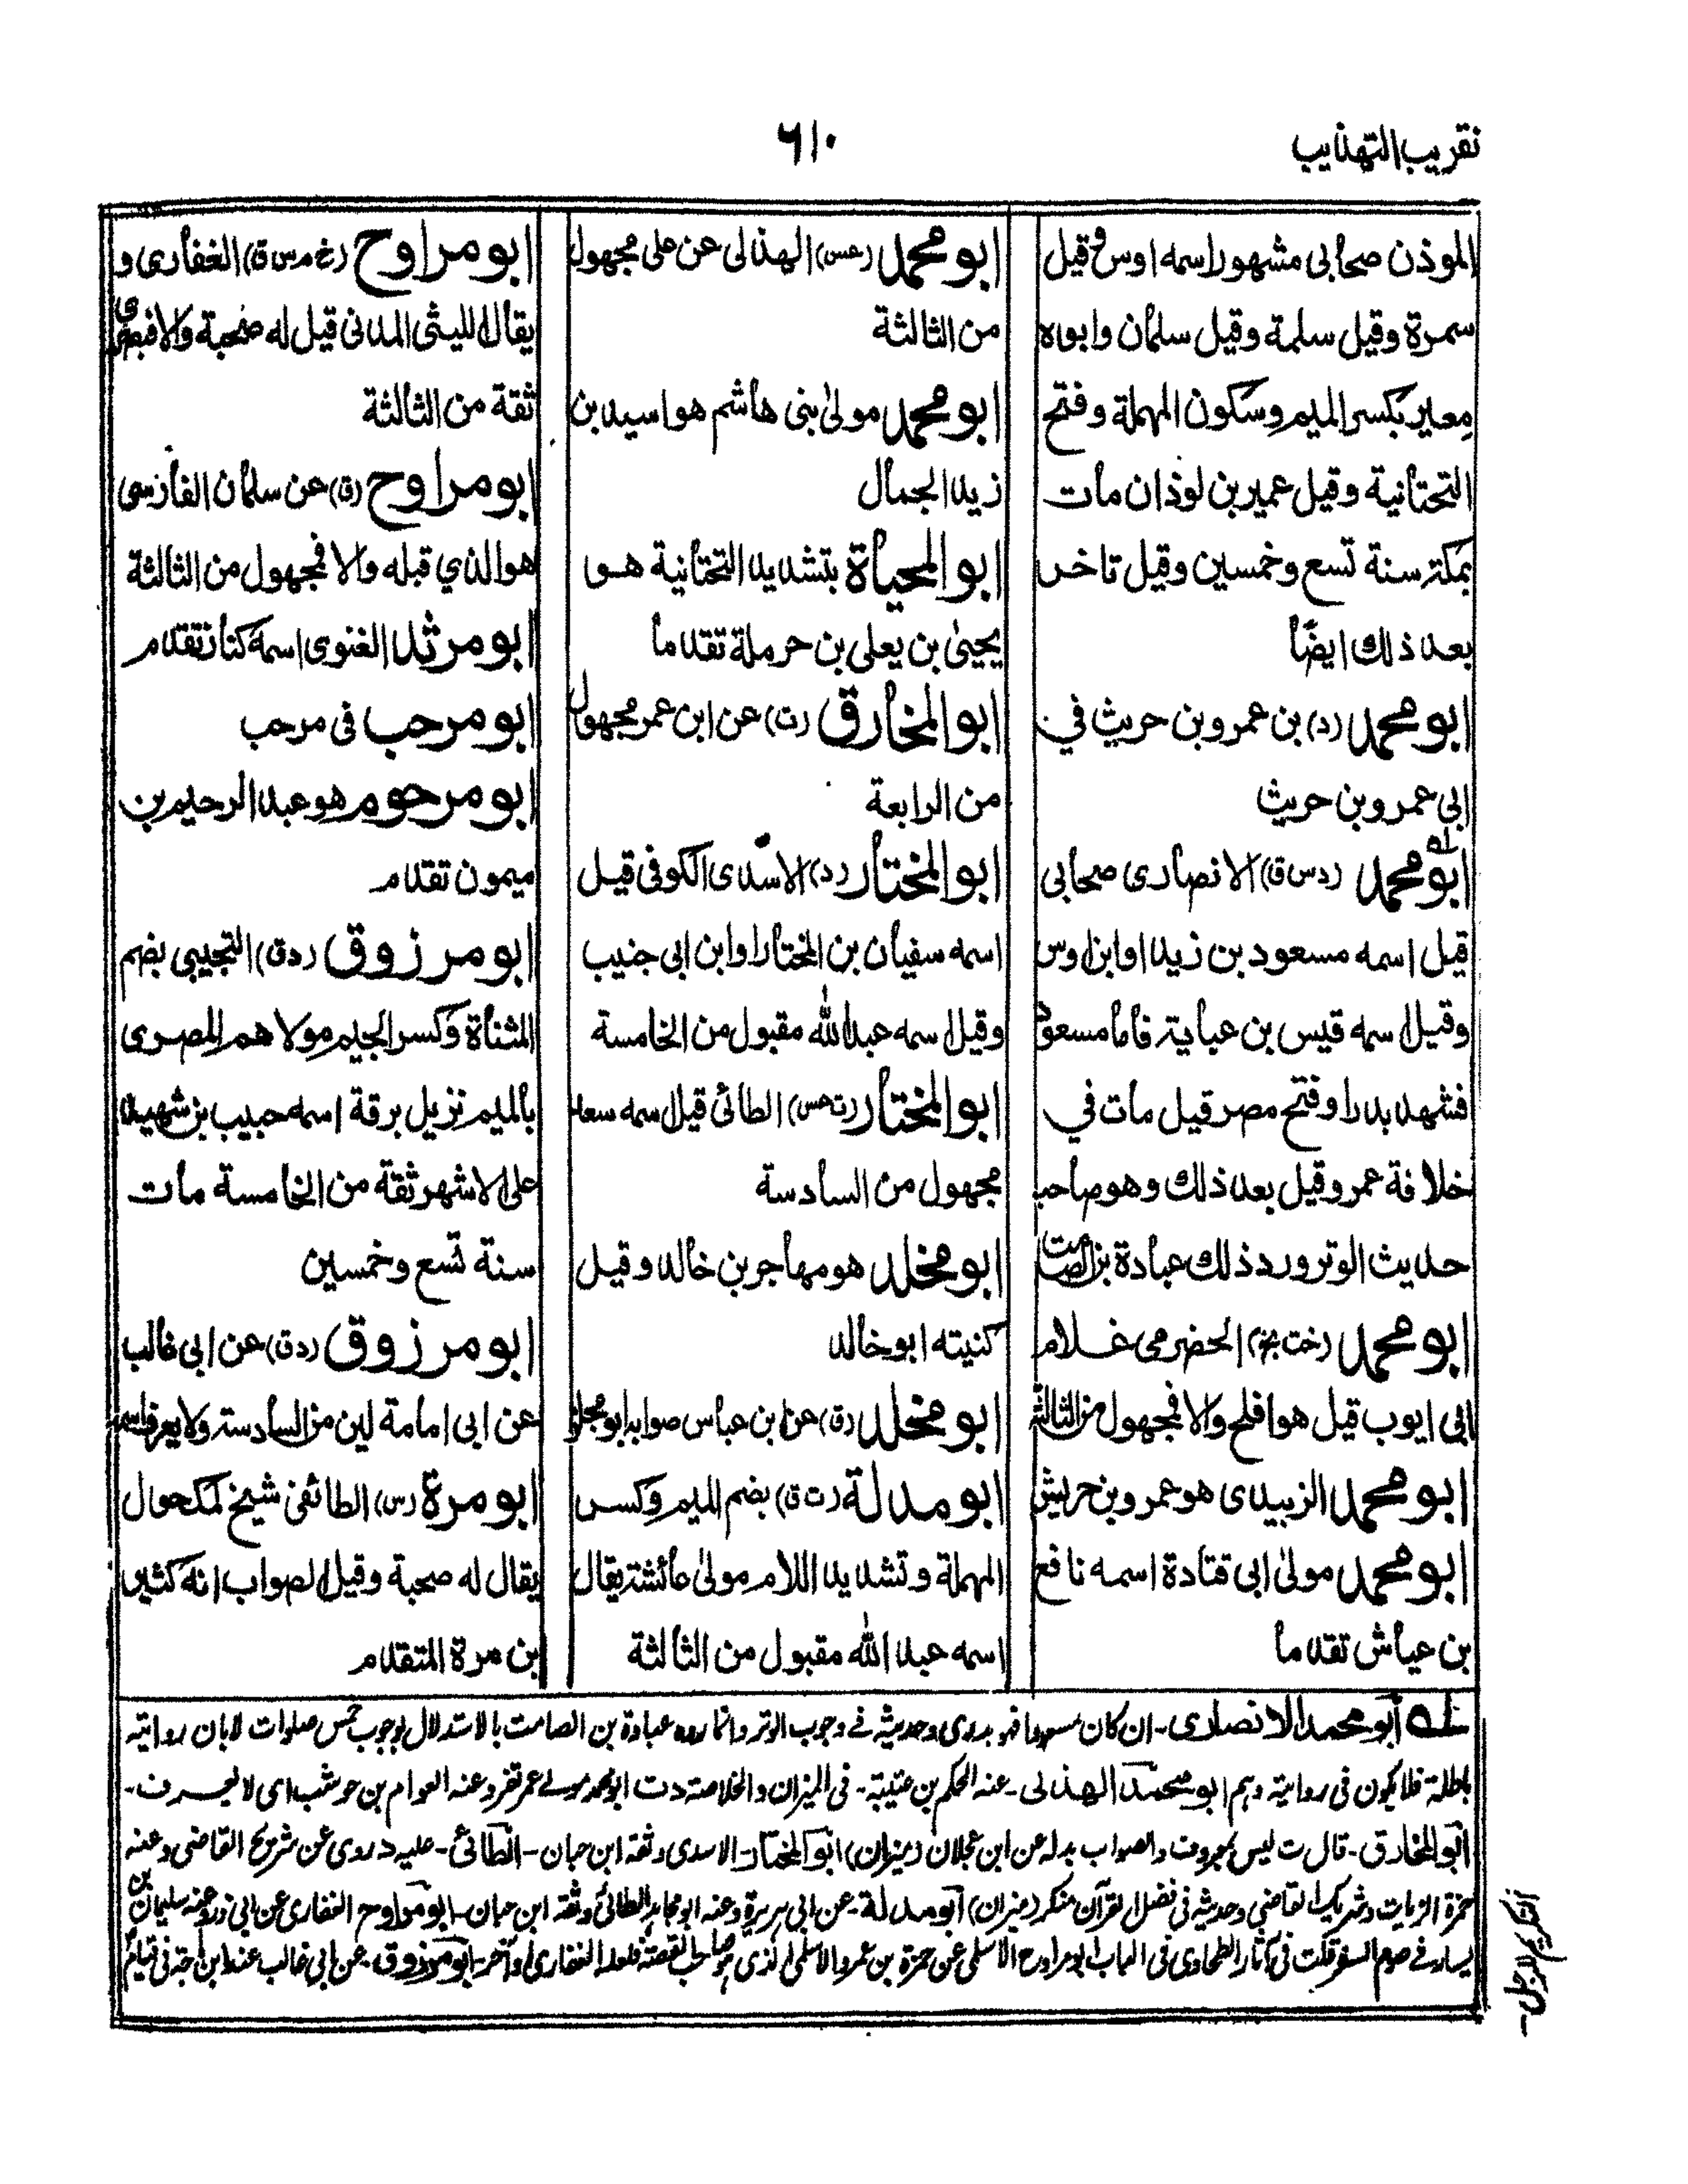 تقريب التهذيب
٦١٠
الموذن صحابى مشهور اسمه اوس وقيل
سمرة وقيل سلمة وقيل سلمان وابوه
معير بكسر الميم وسكون المهملة وفتح
التحتانية وقيل عمير بن لوذان مات
بمكة سنة تسع وخمسين وقيل تاخر
بعد ذلك ايضًا
ابو محمد (د) بن عمرو بن حريث في
ابي عمرو بن حريث
ابو محمد (دس ق) الانصارى صحابى
قيل اسمه مسعود بن زيد اوابن اوس
وقيل اسمه قيس بن عباية فاما مسعود
فشهد بدرا وفتح مصر قيل مات في
خلافة عمر وقيل بعد ذلك وهو صاحب
حديث الوتر ورد ذلك عبادة بن الصامت
ابو محمد (خت بخ) الحضرمى غلام
ابى ايوب قيل هو افلح والا فمجهول من الثالثة
ابو محمد الزبيدى هو عمرو بن حريش
ابو محمد مولىٰ ابى قتادة اسمه نافع
بن عياش تقدما
ابو محمد (عس) الهذلى عن على مجهول
من الثالثة
ابو محمد مولىٰ بنى هاشم هو اسيد بن
زيد الجمال
ابو المحياة بتشديد التحتانية هو
يحيىٰ بن يعلى بن حرملة تقدما
ابو المخارق (ت) عن ابن عمر مجهول
من الرابعة
ابو المختار (د) الاسدى الكوفى قيل
اسمه سفيان بن المختار اوابن ابى حبيب
وقيل اسمه عبد الله مقبول من الخامسة
ابو المختار (ت عس) الطائى قيل اسمه سعد
مجهول من السادسة
ابو مخلد هو مهاجر بن خالد وقيل
كنيته ابو خالد
ابو مخلد (ق) عن ابن عباس صوابه ابو مجلز
ابو مدلة (ت ق) بضم الميم وكسر
المهملة وتشديد اللام مولىٰ عائشة يقال
اسمه عبد الله مقبول من الثالثة
ابو مراوح (خ م س ق) الغفارى و
يقال الليثى المدنى قيل له صحبة والا
ثقة من الثالثة
ابو مراوح (ق) عن سلمان الفارسى
هو الذي قبله والا فمجهول من الثالثة
ابو مرثد الغنوى اسمه كناز تقدم
ابو مرحب فى مرحب
ابو مرحوم هو عبد الرحيم بن
ميمون تقدم
ابو مرزوق (دق) التجيبى بضم
المثناة وكسر الجيم مولاهم المصرى
بالميم نزيل برقة اسمه حبيب بن شهيد
على الاشهر ثقة من الخامسة مات
سنة تسع وخمسين
ابو مرزوق (دق) عن ابى غالب
عن ابى امامة لين من السادسة ولا يعرف اسمه
ابو مرة (س) الطائفى شيخ لمكحول
يقال له صحبة وقيل الصواب انه كثير
بن مرة المتقدم
له ابو محمد الانصارى - ان كان مسعودا فهو بدرى وحديثه في وجوب الوتر وانما رده عبادة بن الصامت بالاستدلال لوجوب خمس صلوات لابان روايته
باطلة فلا يكون فى روايته وهم ابو محمد الهذلى - عنه الحكم بن عتيبة - فى الميزان والخلاصة دت ابو محمد مولى عمر تفرد عنه العوام بن حوشب اى لا يعرف -
ابو المخارق - قال ت ليس بمعروف والصواب بدله عن ابن عجلان (ميزان) ابو المختار - الاسدى وثقه ابن حبان - الطائى - عليه د روى عن شريح القاضى وعنه
حمزة الزيات وشريك القاضى وحديثه فى فضل القرآن منكر (ميزان) ابو مدلة - عن ابى هريرة وعنه ابو مجاهد الطائى وثقه ابن حبان - ابو مراوح الغفارى عن ابى ذر وعنه سليمان بن
يسار في صوم السفر قلت فى آثار الطحاوى فى الباب ابو مراوح الاسلمى عن حمزة بن عمرو الاسلمى الذى هو صاحب القصة فلعل الغفارى آخر - ابو مرزوق - عن ابى غالب عند ابن ماجة فى قيام